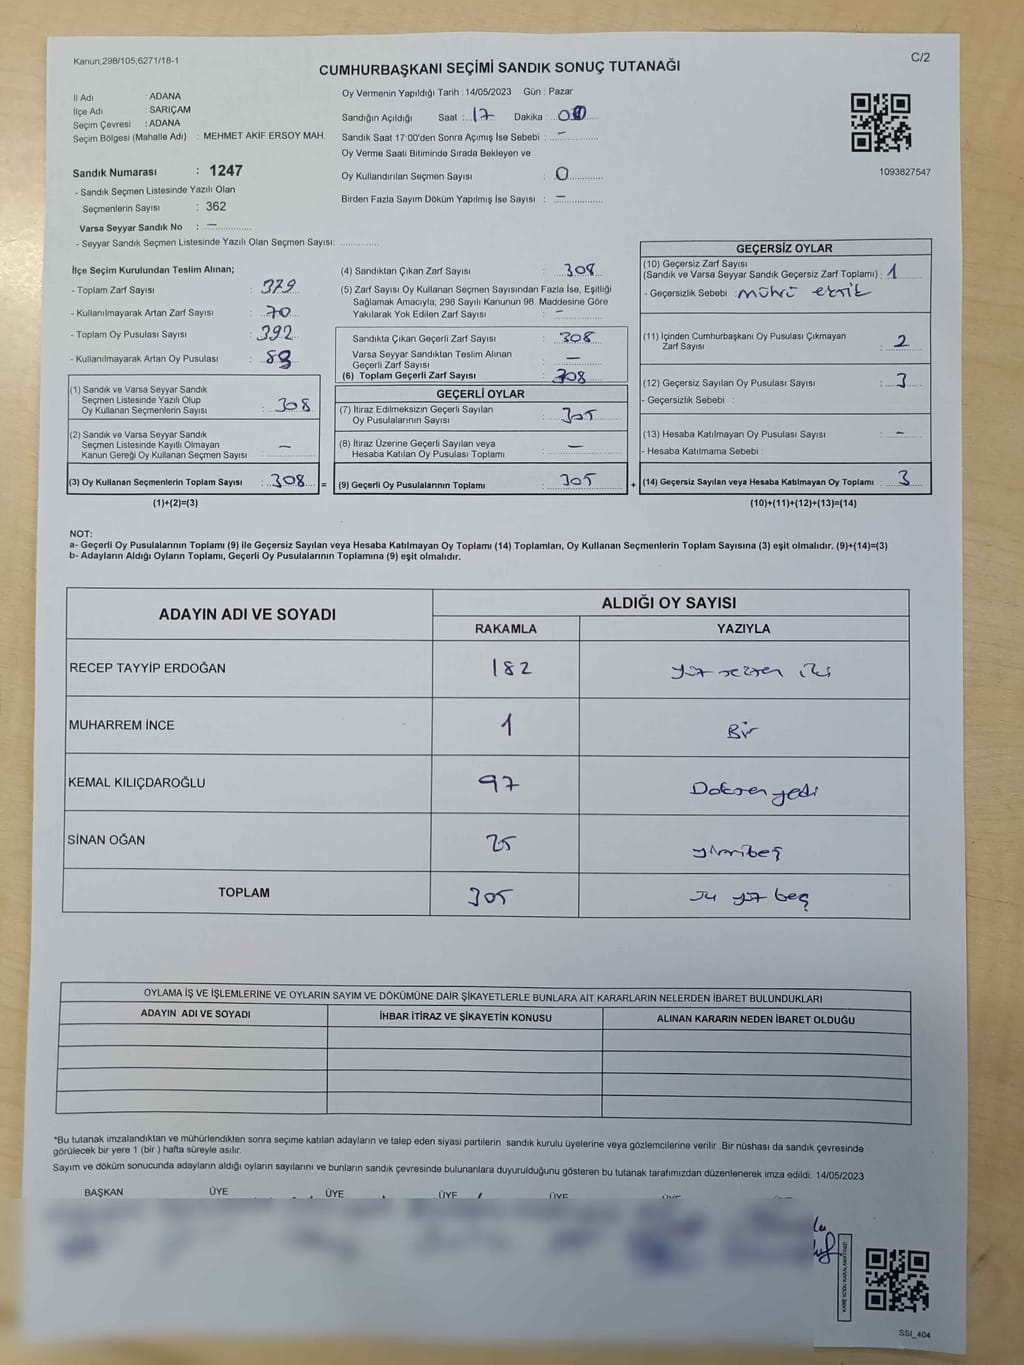 Kanun,298/105;6271/18-1
C/2
CUMHURBAŞKANI SEÇİMİ SANDIK SONUÇ TUTANAĞI
İl Adı : ADANA
İlçe Adı : SARIÇAM
Seçim Çevresi : ADANA
Seçim Bölgesi (Mahalle Adı) : MEHMET AKİF ERSOY MAH.
Sandık Numarası : 1247
- Sandık Seçmen Listesinde Yazılı Olan
Seçmenlerin Sayısı : 362
Varsa Seyyar Sandık No : –
- Seyyar Sandık Seçmen Listesinde Yazılı Olan Seçmen Sayısı:
Oy Vermenin Yapıldığı Tarih : 14/05/2023 Gün : Pazar
Sandığın Açıldığı Saat : 17 Dakika : 00
Sandık Saat 17:00'den Sonra Açımış İse Sebebi : –
Oy Verme Saati Bitiminde Sırada Bekleyen ve
Oy Kullandırılan Seçmen Sayısı : 0
Birden Fazla Sayım Döküm Yapılmış İse Sayısı : –
1093827547
İlçe Seçim Kurulundan Teslim Alınan;
- Toplam Zarf Sayısı : 379
- Kullanılmayarak Artan Zarf Sayısı : 70
- Toplam Oy Pusulası Sayısı : 392
- Kullanılmayarak Artan Oy Pusulası :
(1) Sandık ve Varsa Seyyar Sandık
Seçmen Listesinde Yazılı Olup
Oy Kullanan Seçmenlerin Sayısı : 308
(2) Sandık ve Varsa Seyyar Sandık
Seçmen Listesinde Kayıtlı Olmayan
Kanun Gereği Oy Kullanan Seçmen Sayısı : –
(3) Oy Kullanan Seçmenlerin Toplam Sayısı : 308 =
(1)+(2)=(3)
(4) Sandıktan Çıkan Zarf Sayısı : 308
(5) Zarf Sayısı Oy Kullanan Seçmen Sayısından Fazla İse, Eşitliği
Sağlamak Amacıyla; 298 Sayılı Kanunun 98. Maddesine Göre
Yakılarak Yok Edilen Zarf Sayısı : –
Sandıkta Çıkan Geçerli Zarf Sayısı : 308
Varsa Seyyar Sandıktan Teslim Alınan
Geçerli Zarf Sayısı : –
(6) Toplam Geçerli Zarf Sayısı : 308
GEÇERLİ OYLAR
(7) İtiraz Edilmeksizin Geçerli Sayılan
Oy Pusulalarının Sayısı : 305
(8) İtiraz Üzerine Geçerli Sayılan veya
Hesaba Katılan Oy Pusulası Toplamı : –
(9) Geçerli Oy Pusulalarının Toplamı : 305 +
GEÇERSİZ OYLAR
(10) Geçersiz Zarf Sayısı
(Sandık ve Varsa Seyyar Sandık Geçersiz Zarf Toplamı) : 1
- Geçersizlik Sebebi : mührü eksik
(11) İçinden Cumhurbaşkanı Oy Pusulası Çıkmayan
Zarf Sayısı : 2
(12) Geçersiz Sayılan Oy Pusulası Sayısı : 3
- Geçersizlik Sebebi :
(13) Hesaba Katılmayan Oy Pusulası Sayısı : –
- Hesaba Katılmama Sebebi :
(14) Geçersiz Sayılan veya Hesaba Katılmayan Oy Toplamı : 3
(10)+(11)+(12)+(13)=(14)
NOT:
a- Geçerli Oy Pusulalarının Toplamı (9) ile Geçersiz Sayılan veya Hesaba Katılmayan Oy Toplamı (14) Toplamları, Oy Kullanan Seçmenlerin Toplam Sayısına (3) eşit olmalıdır. (9)+(14)=(3)
b- Adayların Aldığı Oyların Toplamı, Geçerli Oy Pusulalarının Toplamına (9) eşit olmalıdır.
ADAYIN ADI VE SOYADI ALDIĞI OY SAYISI
RAKAMLA YAZIYLA
RECEP TAYYİP ERDOĞAN 182 yüz seksen iki
MUHARREM İNCE 1 Bir
KEMAL KILIÇDAROĞLU 97 Doksan yedi
SİNAN OĞAN 25 yirmibeş
TOPLAM 305 üç yüz beş
OYLAMA İŞ VE İŞLEMLERİNE VE OYLARIN SAYIM VE DÖKÜMÜNE DAİR ŞİKAYETLERLE BUNLARA AİT KARARLARIN NELERDEN İBARET BULUNDUKLARI
ADAYIN ADI VE SOYADI İHBAR İTİRAZ VE ŞİKAYETİN KONUSU ALINAN KARARIN NEDEN İBARET OLDUĞU
*Bu tutanak imzalandıktan ve mühürlendikten sonra seçime katılan adayların ve talep eden siyasi partilerin sandık kurulu üyelerine veya gözlemcilerine verilir .Bir nüshası da sandık çevresinde
görülecek bir yere 1 (bir ) hafta süreyle asılır.
Sayım ve döküm sonucunda adayların aldığı oyların sayılarını ve bunların sandık çevresinde bulunanlara duyurulduğunu gösteren bu tutanak tarafımızdan düzenlenerek imza edildi. 14/05/2023
BAŞKAN ÜYE ÜYE ÜYE ÜYE
KARE KODU KARALAMAYINIZ!
SSI_404